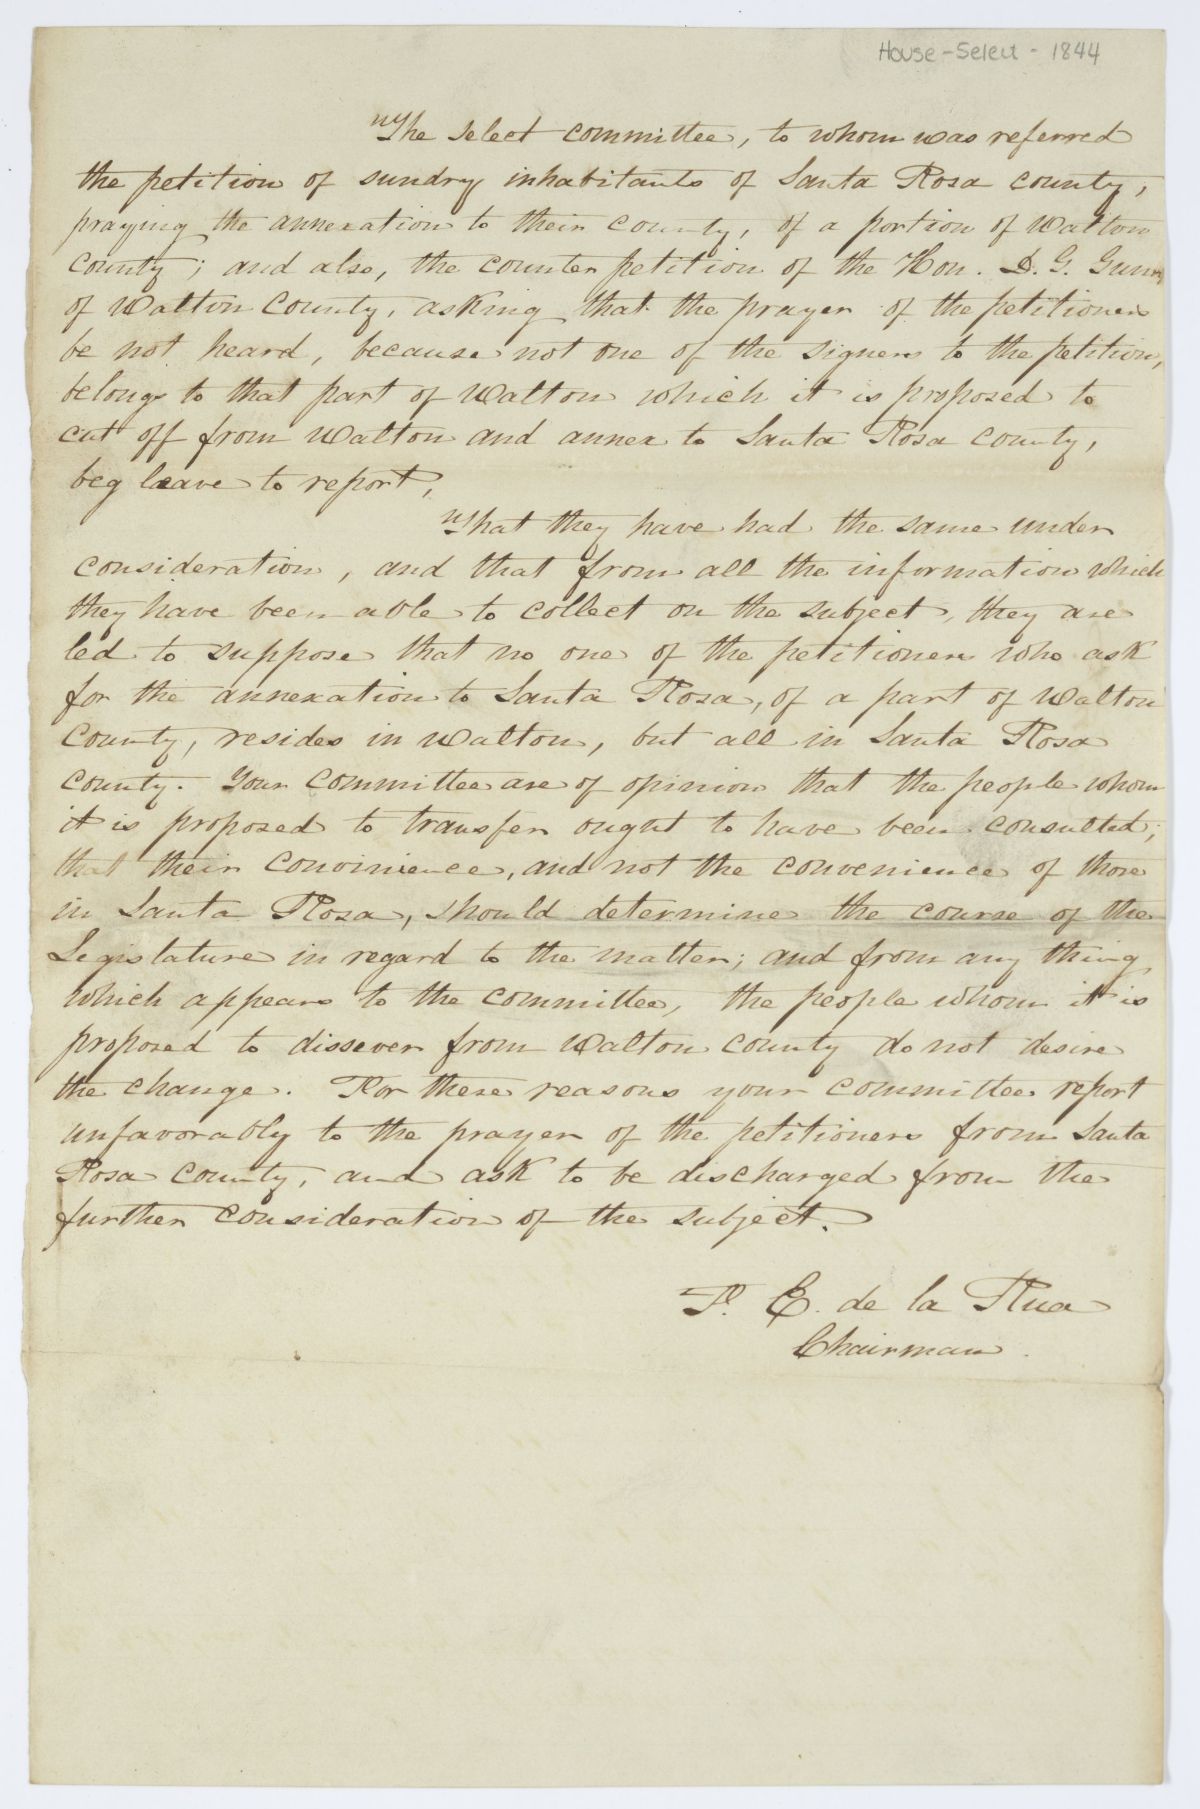 House-Select - 1844
The select committee, to whom was referred
the petition of sundry inhabitants of Santa Rosa county,
praying the annexation to their county, of a portion of Walton
county; and also, the counter petition of the Hon. D. G. Gunn
of Walton County, asking that the prayer of the petitioners
be not heard, because not one of the signers to the petition,
belongs to that part of Walton which it is proposed to
cut off from Walton and annex to Santa Rosa county,
beg leave to report,
That they have had the same under
consideration, and that from all the information which
they have been able to collect on the subject, they are
led to suppose that no one of the petitioners who ask
for the annexation to Santa Rosa, of a part of Walton
County, resides in Walton, but all in Santa Rosa
county. Your committee are of opinion that the people whom
it is proposed to transfer ought to have been consulted;
that their convinience, and not the convenience of those
in Santa Rosa, should determine the course of the
Legislature in regard to the matter; and from any thing
which appears to the committee, the people whom it is
proposed to dissever from Walton county do not desire
the change. For these reasons your committee report
unfavorably to the prayer of the petitioners from Santa
Rosa county, and ask to be discharged from the
further consideration of the subject.
F. E. de la Rua
Chairman.